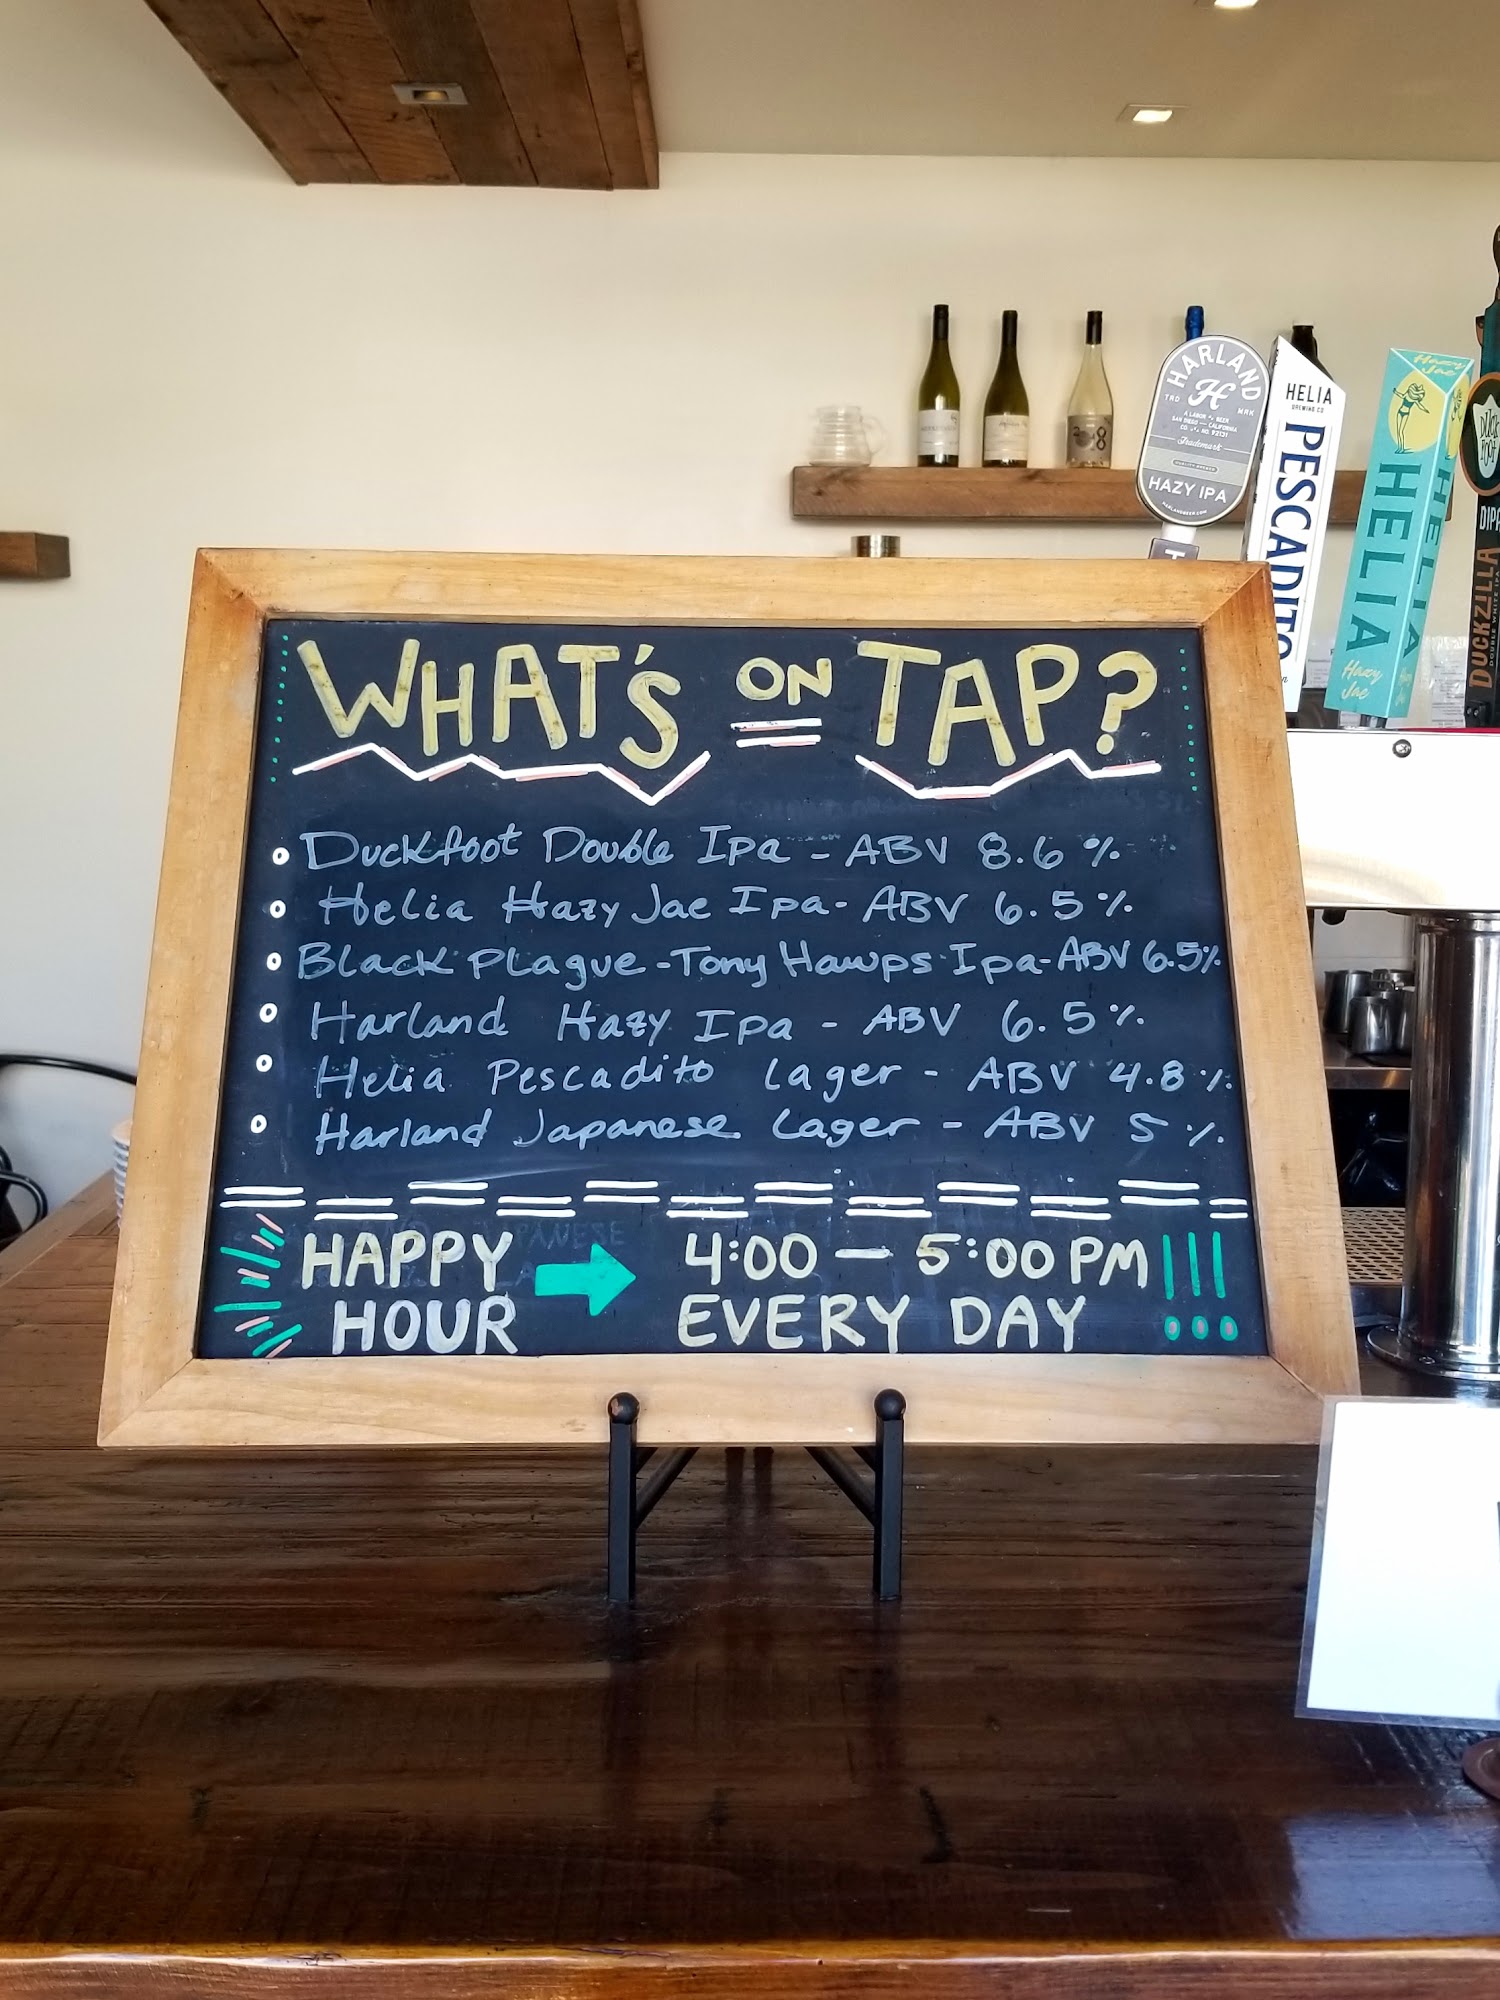 WHAT'S ON TAP?
Duckfoot Double Ipa - ABV 8.6 %
Helia Hazy Jae Ipa - ABV 6.5 %
Black Plague - Tony Hawps Ipa - ABV 6.5%
Harland Hazy IPa - ABV 6.5 %
Helia Pescadito Lager - ABV 4.8 %
Harland Japanese Lager - ABV 5 %
HAPPY
HOUR
4:00 — 5:00 PM !!!
EVERY DAY
HARLAND
H
TRD MRK
A LABOR of BEER
SAN DIEGO — CALIFORNIA
CO NO. 92131
Trademark
HAZY IPA
HARLANDBEER.COM
HELIA
BREWING CO
PESCADITO
Hazy
Jae
HELIA
Hazy
Jae
HELIA
DUCK
FOOT
DIPA
DUCKZILLA
DOUBLE WHITE IPA